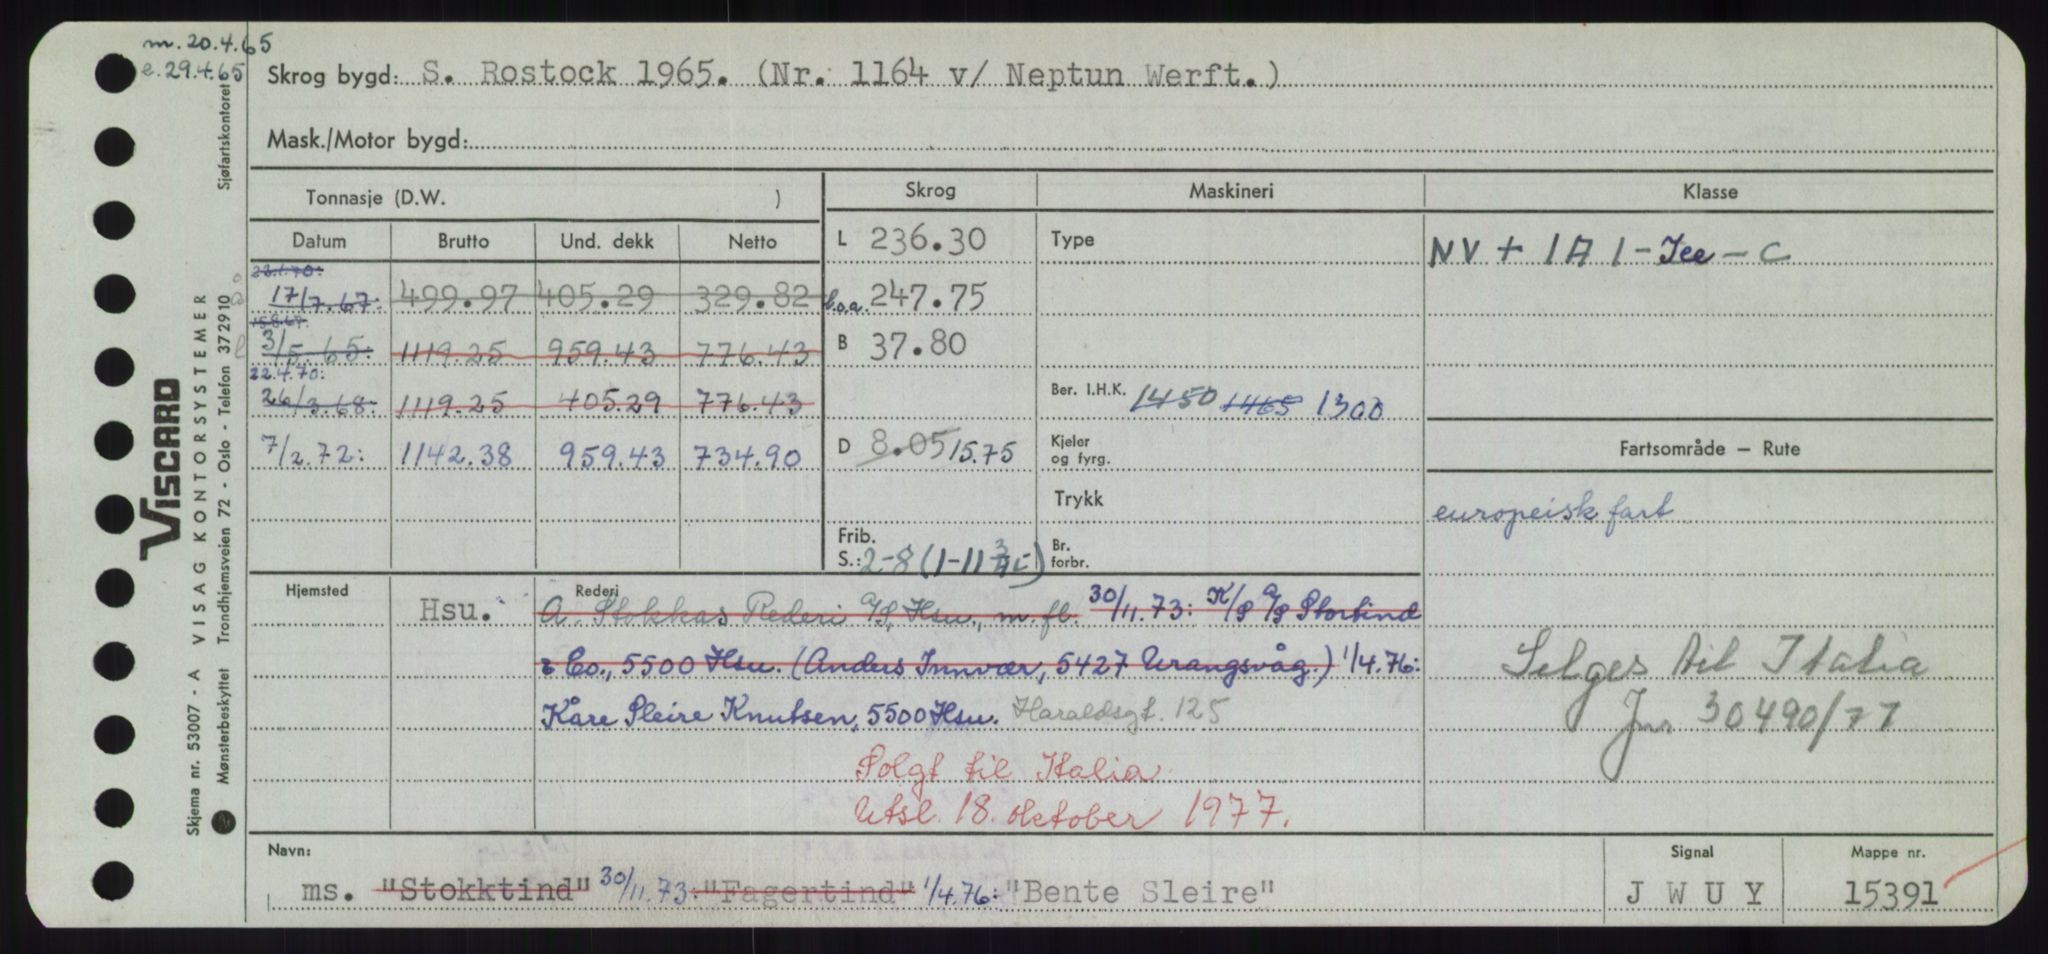 m. 20.4.65
e. 29.4.65
Skrog bygd: S. Rostock 1965. (Nr. 1164 v/ Neptun Werft.)
Mask./Motor bygd:
Tonnasje (D.W. )
Skrog Maskineri Klasse
Datum Brutto Und. dekk Netto
L 236.30 Type NV + 1A1 - Ice - C
22.1.70:
17/7.67: 499.97 405.29 329.82 l.o.a. 247.75
15.8.67.
3/5.65: 1119.25 959.43 776.43 B 37.80
22.4.70:
26/3.68: 1119.25 405.29 776.43 Ber. I.H.K. 1450 1465 1300
7/2.72: 1142.38 959.43 734.90 D 8.05 15.75 Kjeler og fyrg.
Fartsområde — Rute
Trykk
europeisk fart
Frib. S.: 2-8 (1-11 3/4 ) Br. forbr.
Hjemsted Rederi
Hsu. A. Stokkas Rederi A/S, Hsu., m. fl. 30/11.73: K/S A/S Stortind
& Co., 5500 Hsu. (Anders Innvær, 5427 Urangsvåg.) 1/4.76:
Kåre Sleire Knutsen, 5500 Hsu. Haraldsgt. 125
Selges til Italia
Jnr 30490/77
Solgt til Italia
Utsl. 18. oktober 1977.
Navn: ms. "Stokktind" 30/11.73: "Fagertind" 1/4.76: "Bente Sleire"
Signal
J W U Y
Mappe nr.
15391
VISCARD
Skjema nr. 53007 - A VISAG KONTORSYSTEMER
Mønsterbeskyttet Trondhjemsveien 72 - Oslo - Telefon 372910
Sjøfartskontoret